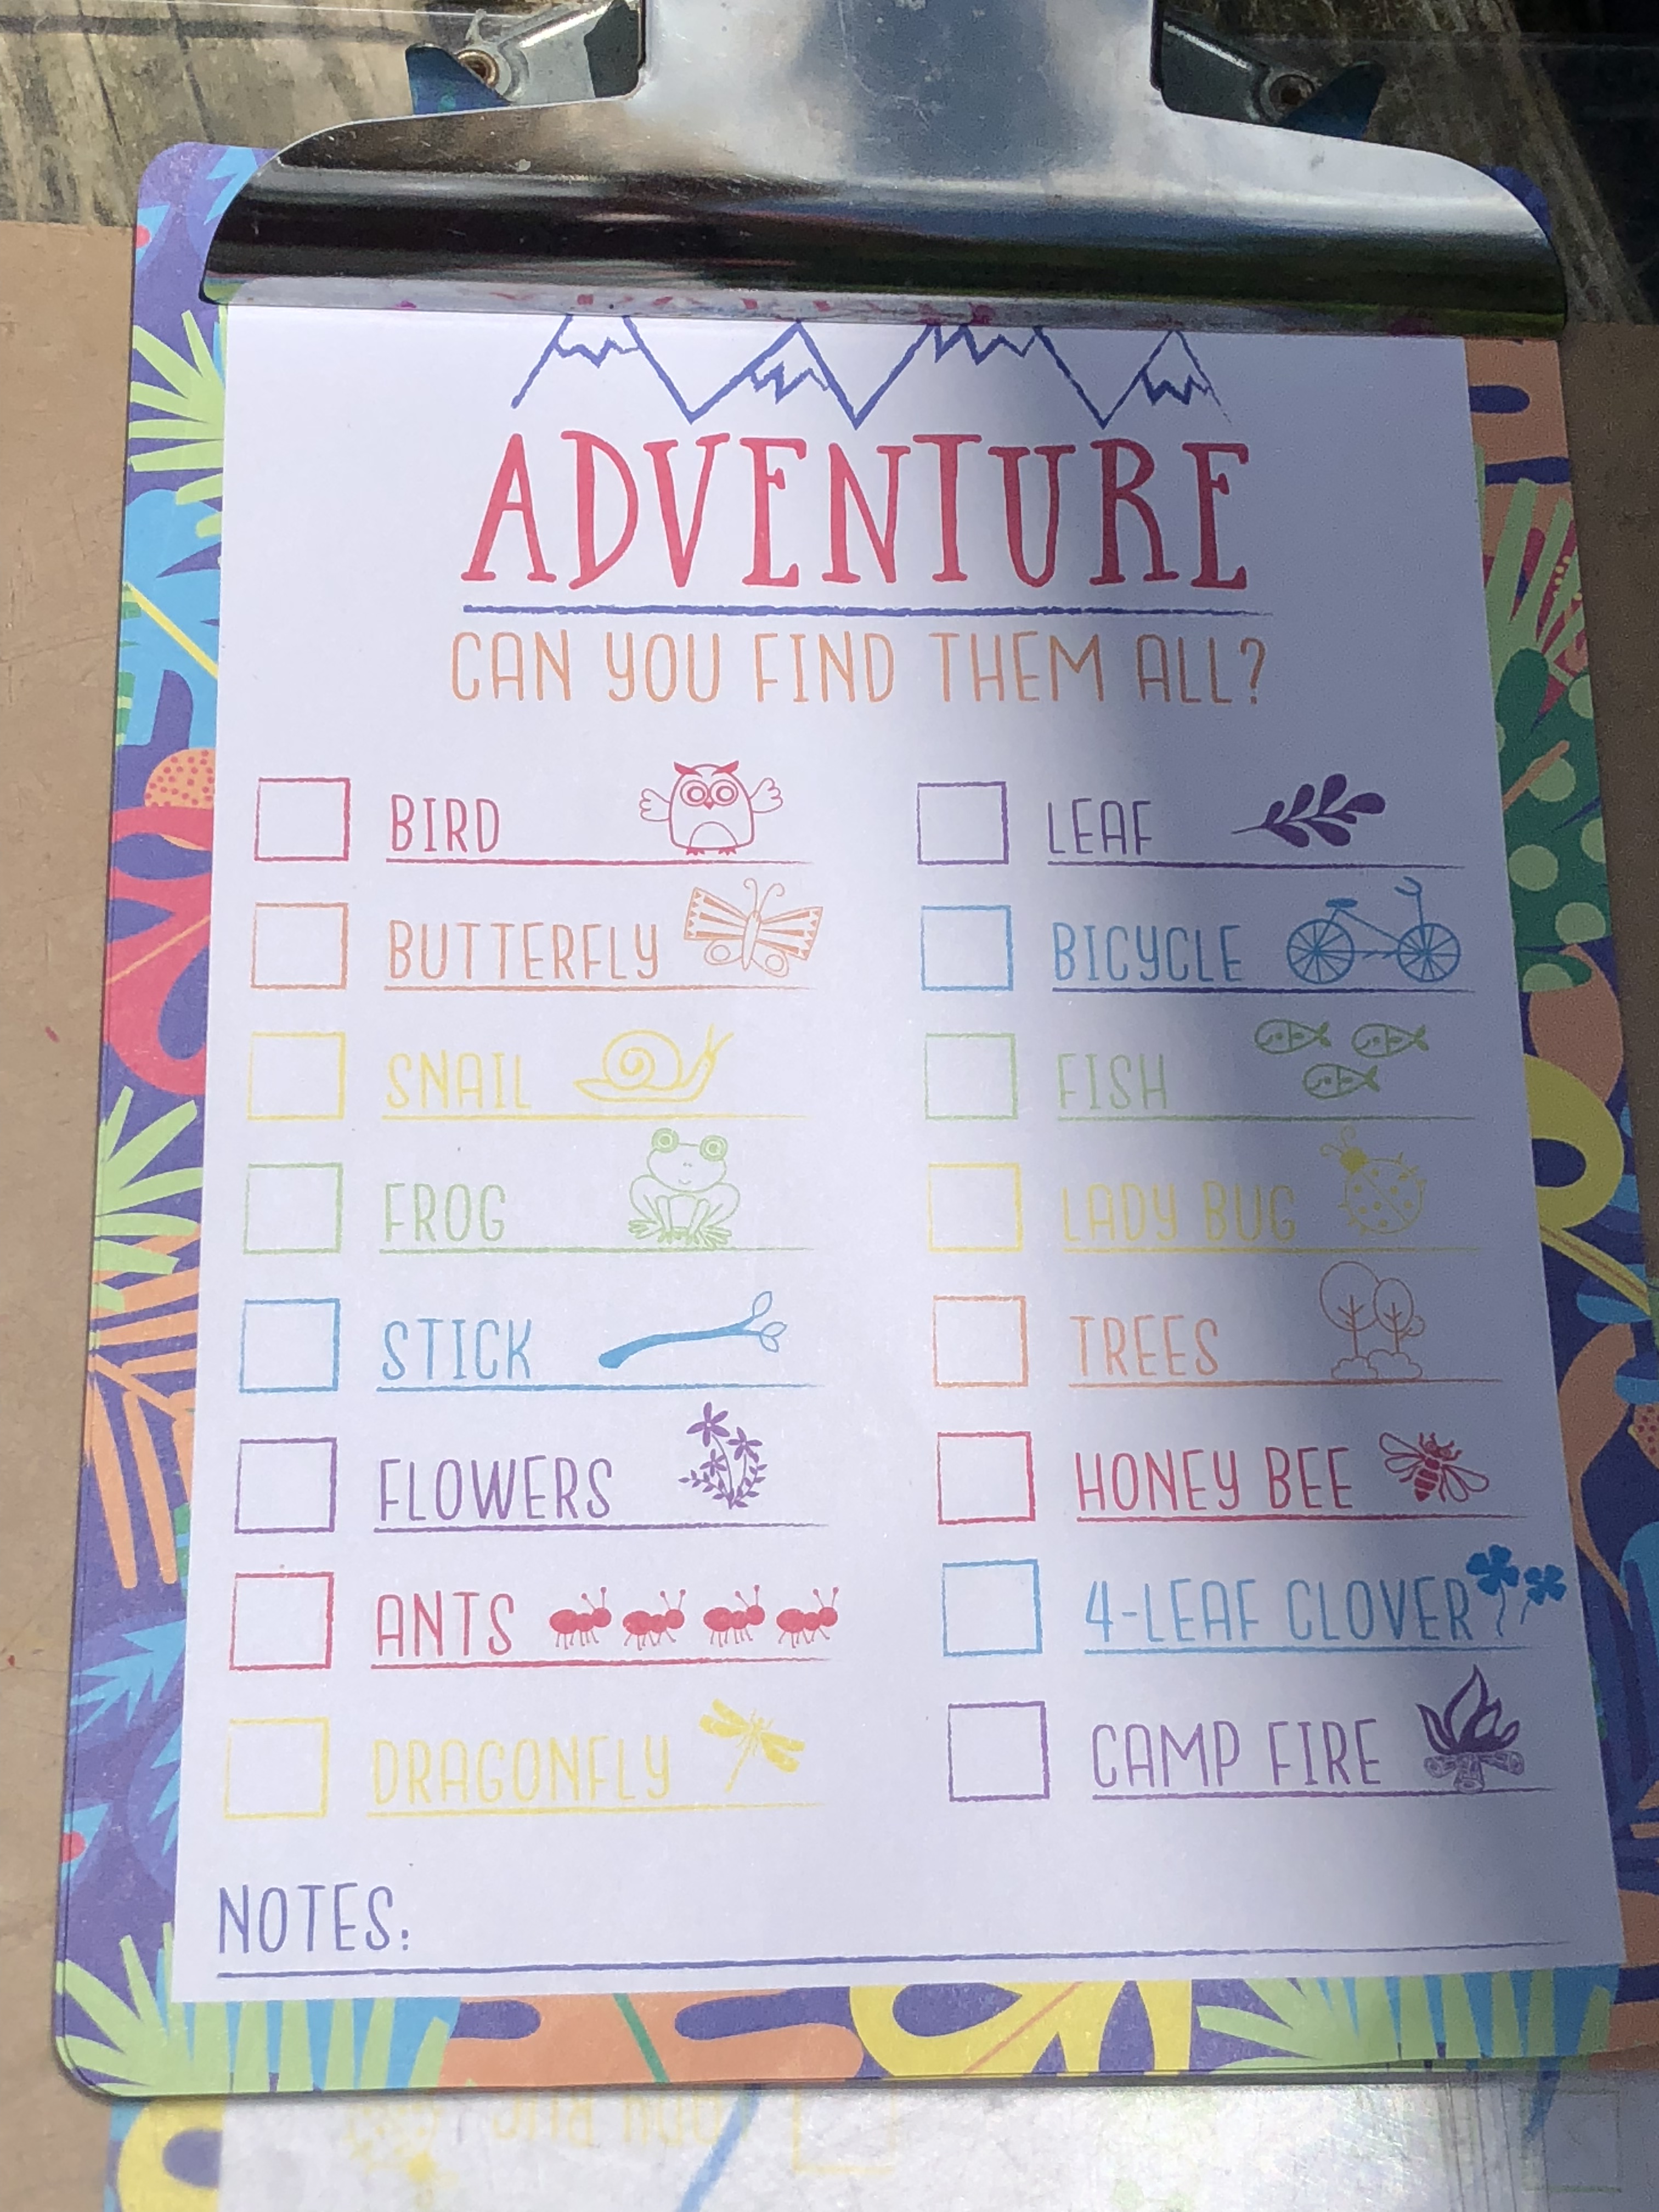 ADVENTURE
CAN YOU FIND THEM ALL?
BIRD
BUTTERFLY
SNAIL
FROG
STICK
FLOWERS
ANTS
DRAGONFLY
LEAF
BICYCLE
FISH
LADY BUG
TREES
HONEY BEE
4-LEAF CLOVER
CAMP FIRE
NOTES: